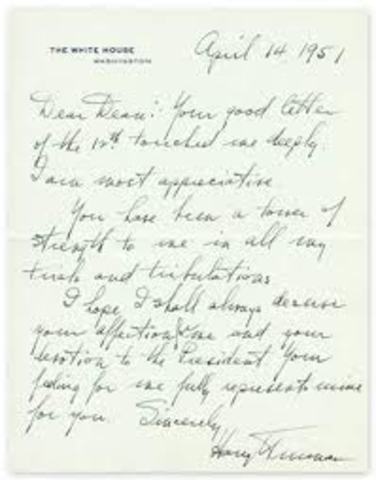 THE WHITE HOUSE
WASHINGTON
April 14, 1951
Dear Dean: Your good letter
of the 12th touched me deeply.
I am most appreciative
You have been a tower of
strength to me in all my
trials and tribulations
I hope I shall always deserve
your affection & me and your
devotion to the President Your
feeling for me fully represents mine
for you. Sincerely,
Harry Truman